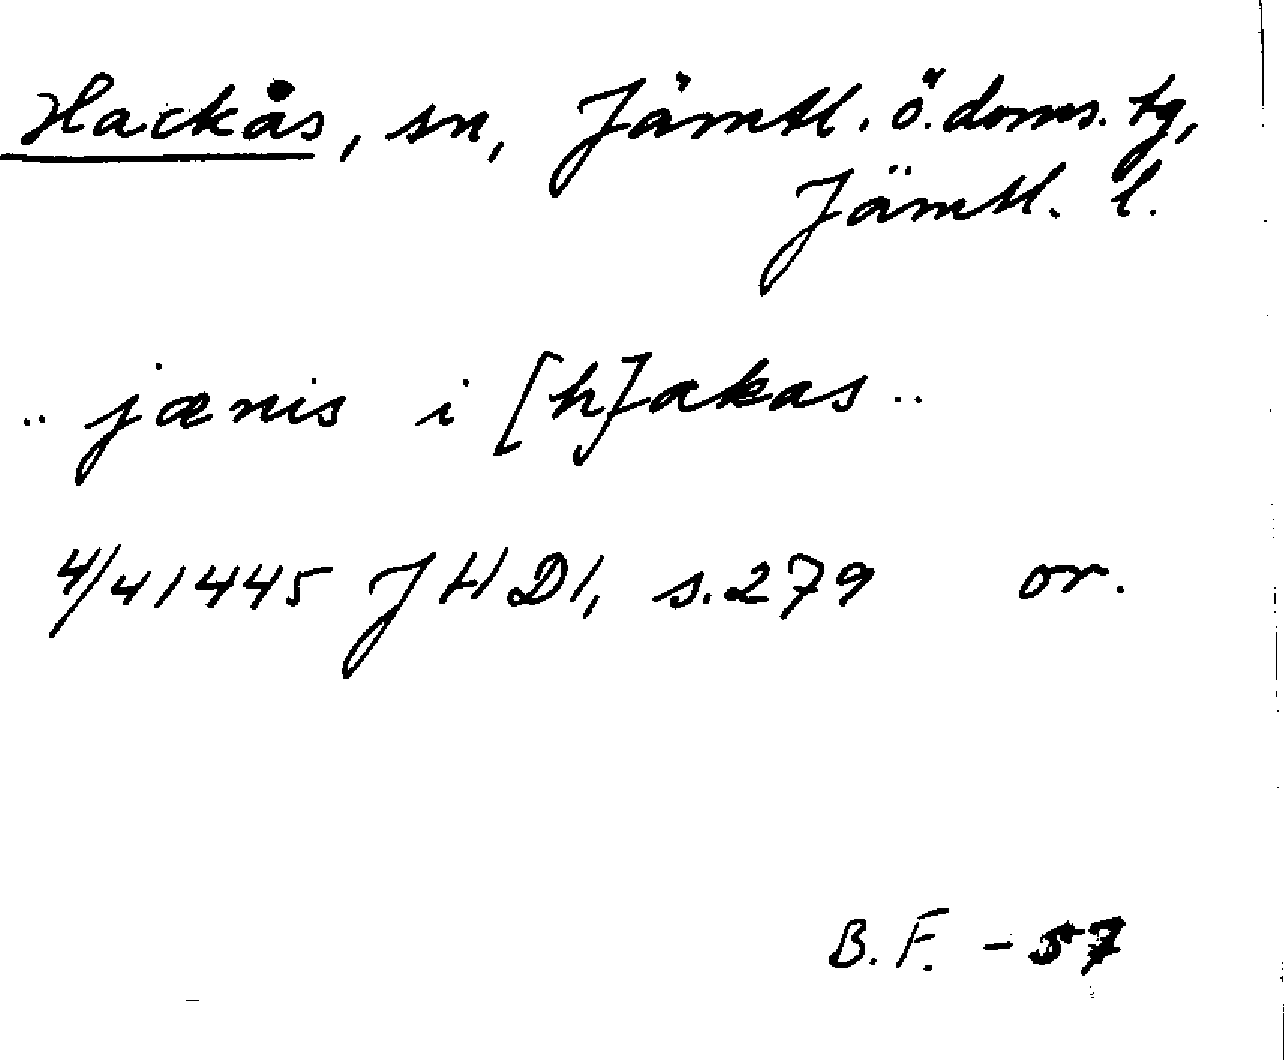 Hackås, sn, Jämtl. ö. doms. tg,
Jämtl. l.
.. jænis i [h]akas ..
4/4 1445 JHD1, s. 279 or.
B.F. - 57